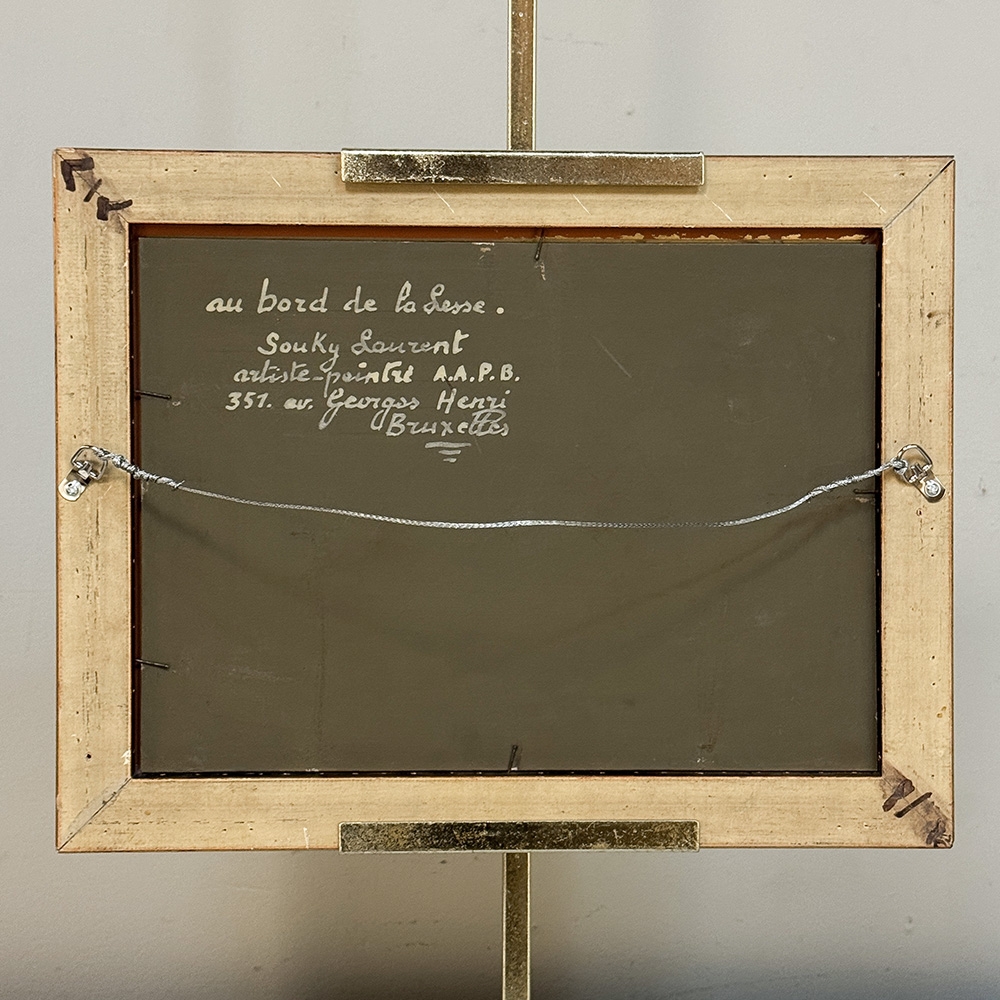 au bord de la Lesse.
Souky Laurent
artiste-peintre A.A.P.B.
351. av. Georges Henri
Bruxelles